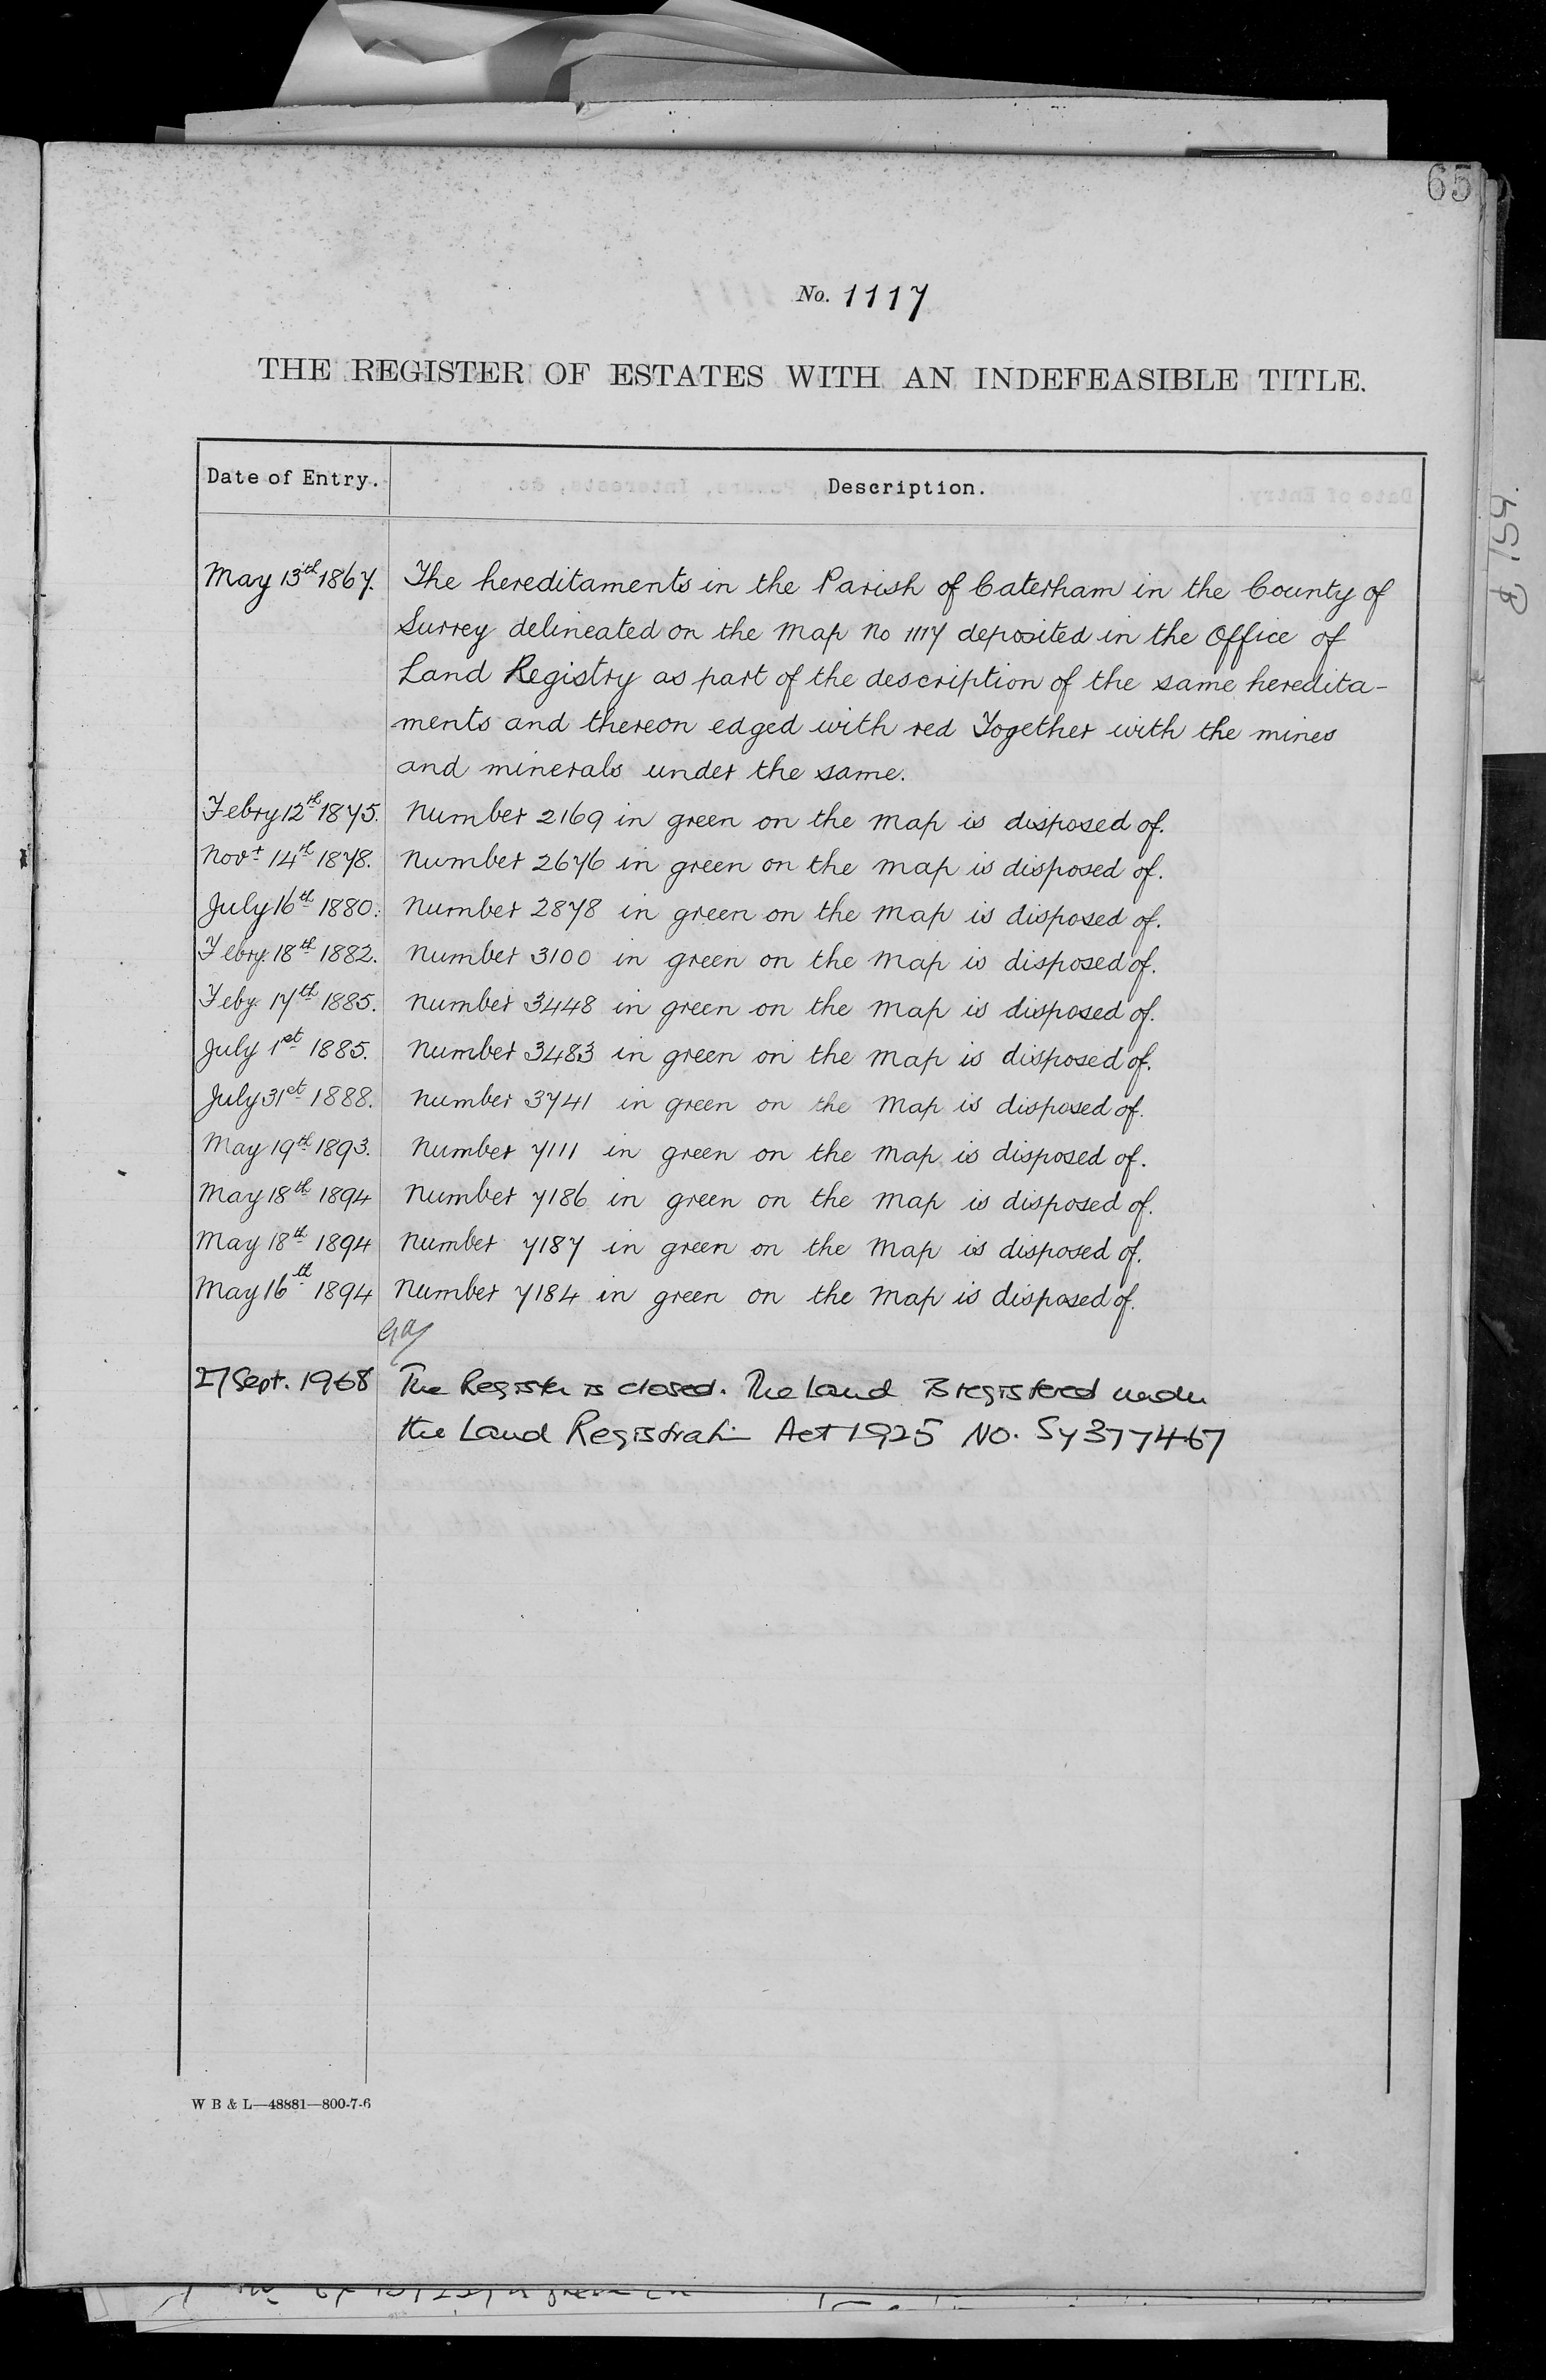 65
No. 1117
THE REGISTER OF ESTATES WITH AN INDEFEASIBLE TITLE.
Date of Entry. Description.
May 13th 1867. The hereditaments in the Parish of Caterham in the County of
Surrey delineated on the Map No 1117 deposited in the Office of
Land Registry as part of the description of the same heredita-
ments and thereon edged with red Together with the mines
and minerals under the same.
Febry 12th 1875. Number 2169 in green on the Map is disposed of.
Novr 14th 1878. Number 2676 in green on the Map is disposed of.
July 16th 1880. Number 2878 in green on the Map is disposed of.
Febry. 18th 1882. Number 3100 in green on the Map is disposed of.
Feby. 17th 1885. Number 3448 in green on the Map is disposed of.
July 1st 1885. Number 3483 in green on the Map is disposed of.
July 31st 1888. Number 3741 in green on the Map is disposed of.
May 19th 1893. Number 7111 in green on the Map is disposed of.
May 18th 1894 Number 7186 in green on the Map is disposed of.
May 18th 1894 Number 7187 in green on the Map is disposed of.
May 16th 1894 Number 7184 in green on the Map is disposed of.
27 Sept. 1968 The Register is closed. The Land is registered under
the Land Registration Act 1925 No. Sy 377467
W B & L—48881—800-7-6